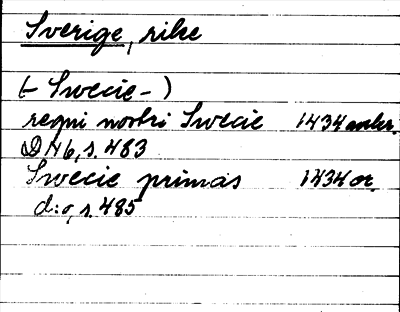 Sverige, rike
(- Swecie -)
regni nostri Swecie 1434 avskr.
DN 6, s. 483
Swecie primas 1434 or.
d:o, s. 485